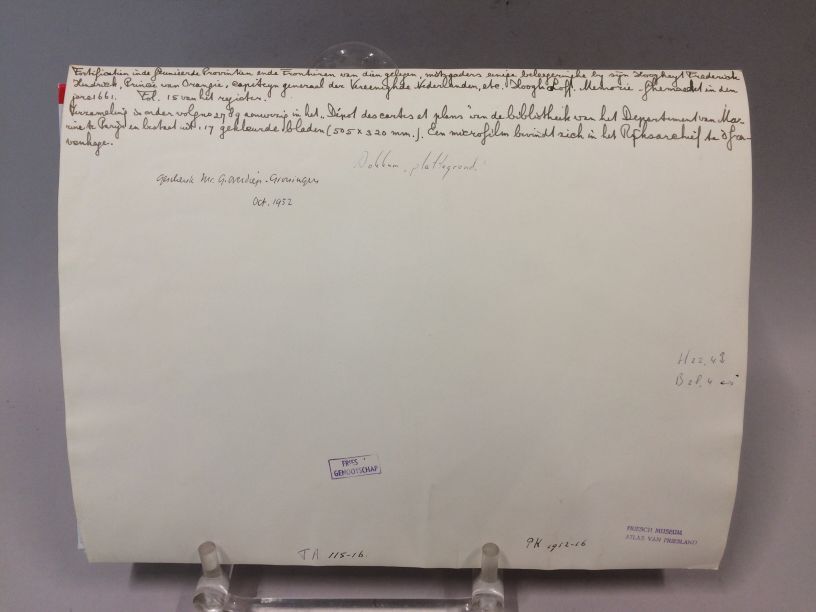 Fortificatien inde Geunieerde Provintien ende Frontieren van dien gelegen, mitsgaders eenige belegeringhe by sijn Hoogheyt Frederick
Hendrick, Prince van Orangie, capiteyn generaal der Vereenighde Nederlanden, etc. Hoogh Loff. Memorie. Ghemaeckt in den
jare 1661. Fol. 15 van het register.
Verzameling is onder volgno 2789 aanwezig in het "Dépot des cartes et plans" van de bibliotheek van het Departement van Ma-
rine te Parijs en bestaat uit 17 gekleurde bladen (505 x 320 mm.). Een microfilm bevindt zich in het Rijksarchief te 's Gra-
venhage.
Dokkum "plattegrond"
Geschenk Mr. G. Overdiep. Groningen
Oct. 1952
H 22, 48
B 28, 4
FRIES
GENOOTSCHAP
FRIESCH MUSEUM
ATLAS VAN FRIESLAND
TA 115-16
PK 1952-16